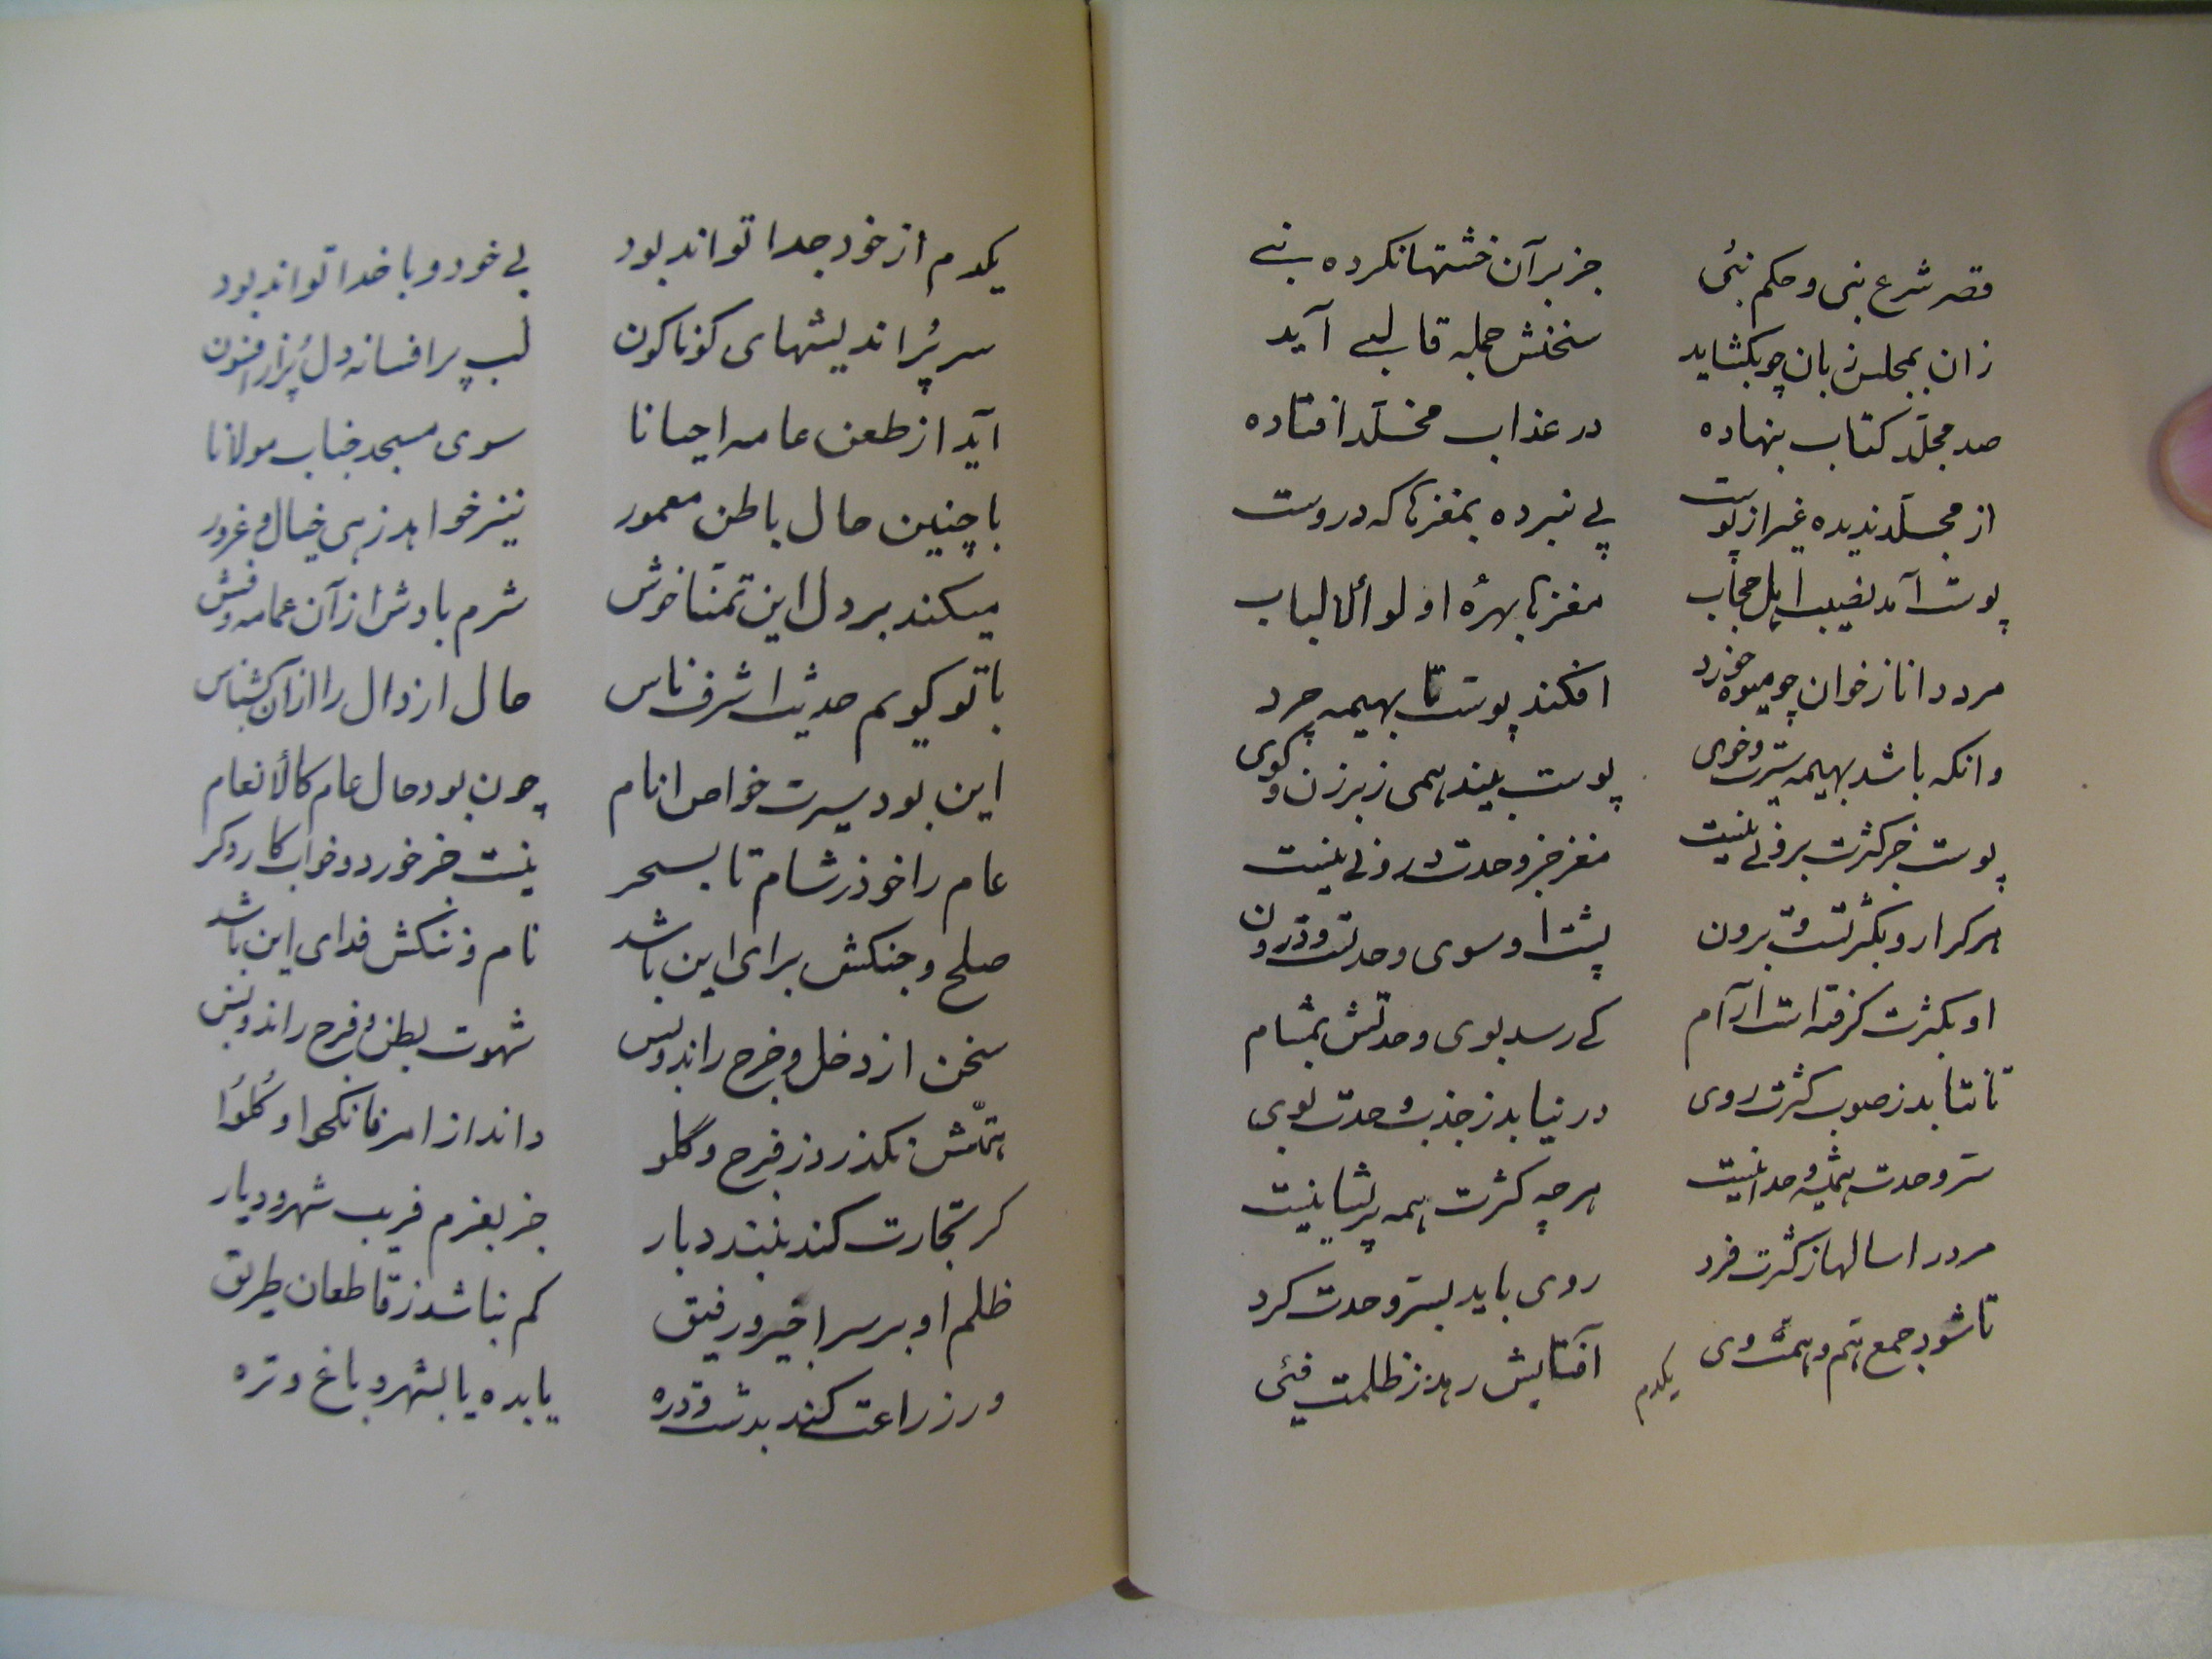 قصر شرع نبی و حکم نبئی جز بر آن خشتها نکرده بنے
زان بمجلس زبان چو بکشاید سخنش جمله قالبے آید
صد مجلّد کتاب بنهاده در عذاب مخلّد افتاده
از مجلّد ندیده غیر از پوست پی نبرده بمغزها که دروست
پوست آمد نصیب اهل حجاب مغزها بهرهٔ اولو الالباب
مرد دانا ز خوان چو میوه خورد افکند پوست تا بهیمه چرد
وانکه باشد بهیمه سیرت و خوی پوست بیند همی ز برزن و کوی
پوست جز کثرت برونی نیست مغز جز وحدت درونی نیست
هر کرا رو بکثرتست و برون پشت او سوی وحدتست و درون
او بکثرت کرفته است آرام کے رسد بوی وحدتش بمشام
تا نتابد ز صوب کثرت روی در نیابد ز جذب وحدت بوی
سرّ وحدت همیشه وحدانیست هر چه کثرت همه پریشانیست
مرد را سالها ز کثرت فرد روی باید بسرّ وحدت کرد
تا شود جمع هم و همت وی آفتابش رهد ز ظلمت فئی
یکدم
یکدم از خود جدا تواند بود بی خود و با خدا تواند بود
سر پُر اندیشهای کوناکون لب پر افسانه دل پُر از افسون
آید از طعن عامه احیانا سوی مسجد جناب مولانا
با چنین حال باطن معمور نیز خواهد زهی خیال و غرور
میکند بر دل این تمنّا خوش شرم بادش از آن عمامه و فش
با تو کویم حدیث اشرف ناس حال ارذال را از آن بشناس
این بود سیرت خواص انام چون بود حال عام کالأنعام
عام را خود ز شام تا بسحر نیست جز خورد و خواب کار دکر
صلح و جنکش برای این باشد نام و ننکش فدای این باشد
سخن از دخل و خرج راند و بس شهوت بطن و فرج راند و بس
همّتش نکذرد ز فرج و گلو داند از امر فانکحوا و کُلُوُا
کر تجارت کند نبندد بار جز بعزم فریب شهر و دیار
ظلم او بر سر اجیر و رفیق کم نباشد ز قاطعان طریق
ور زراعت کند بدشت و دره یا بده یا بشهر و باغ و تره